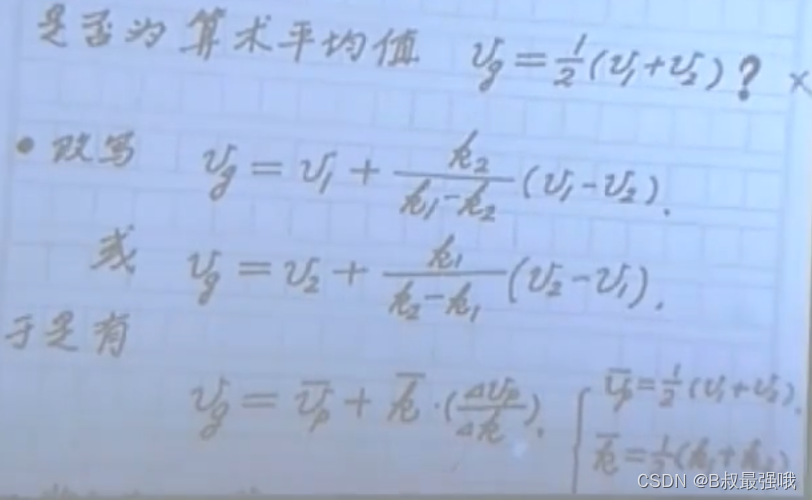 是否为算术平均值 v_g = 1/2 (v_1 + v_2) ? ×
• 改写 v_g = v_1 + k_2/(k_1 - k_2) (v_1 - v_2).
或 v_g = v_2 + k_1/(k_2 - k_1) (v_2 - v_1).
于是有
v_g = v̄_p + k̄ · (Δv_p/Δk). { v̄_p = 1/2 (v_1 + v_2).
k̄ = 1/2 (k_1 + k_2)
CSDN @B叔最强哦